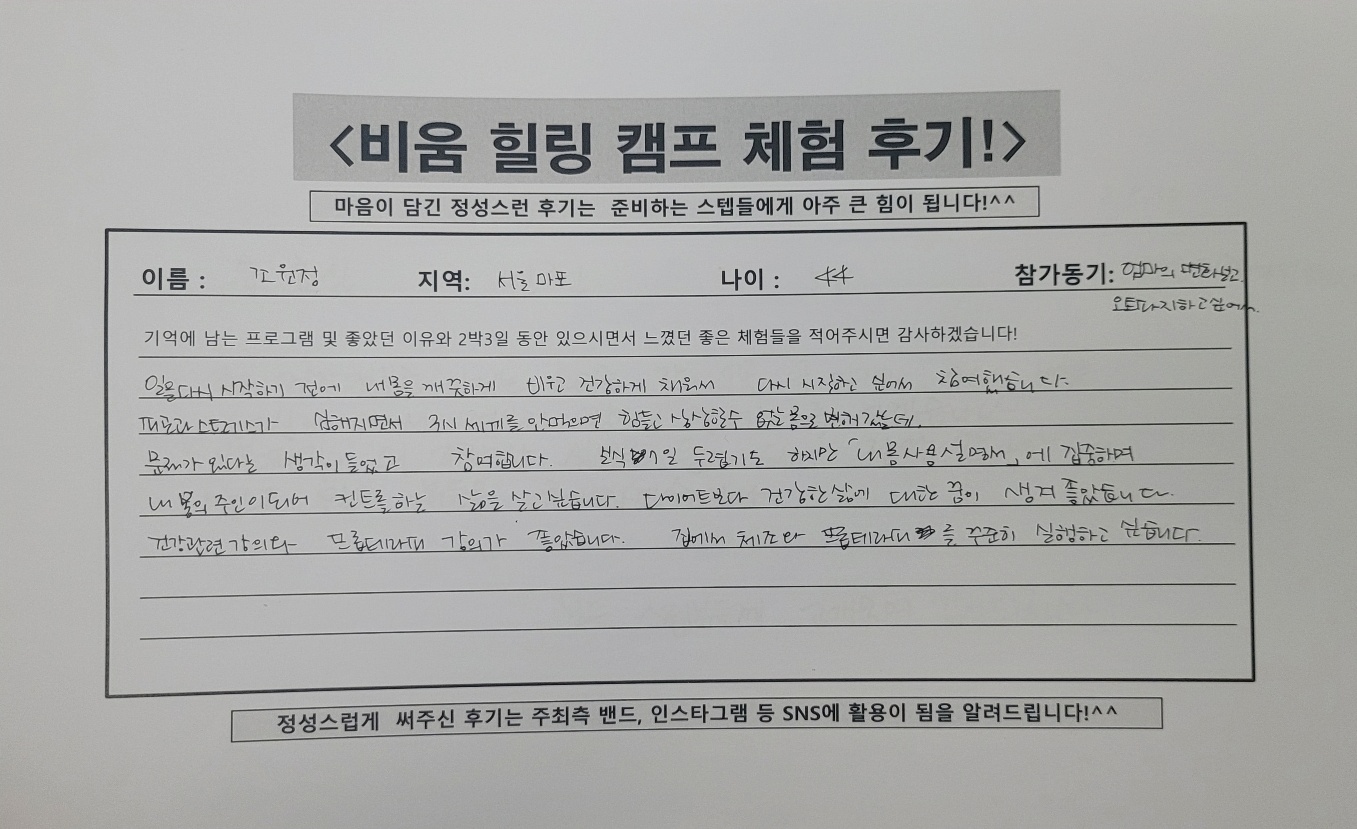 <비움 힐링 캠프 체험 후기!>
마음이 담긴 정성스런 후기는 준비하는 스텝들에게 아주 큰 힘이 됩니다!^^
이름 : 조원정 지역: 서울 마포 나이 : 44 참가동기: 엄마의 변화보고
하고싶어서.
기억에 남는 프로그램 및 좋았던 이유와 2박3일 동안 있으시면서 느꼈던 좋은 체험들을 적어주시면 감사하겠습니다!
일을 다시 시작하기 전에 내 몸을 깨끗하게 비우고 건강하게 채워서 다시 시작하고 싶어서 참여했습니다.
피로과 스트레스가 심해지면서 3시 세끼를 안먹으면 힘들고 상상할수 없는 몸으로 변해 갔는데,
문제가 있다는 생각이 들었고 참여합니다. 단식 7일 두렵기도 하지만 「내몸사용설명서」에 집중하며
내 몸의 주인이되어 컨트롤하는 삶을 살고싶습니다. 다이어트보다 건강한 삶에 대한 꿈이 생겨 좋았습니다.
건강관련 강의와 강의가 좋았습니다. 집에서 체조와 를 꾸준히 실행하고 싶습니다.
정성스럽게 써주신 후기는 주최측 밴드, 인스타그램 등 SNS에 활용이 됨을 알려드립니다!^^